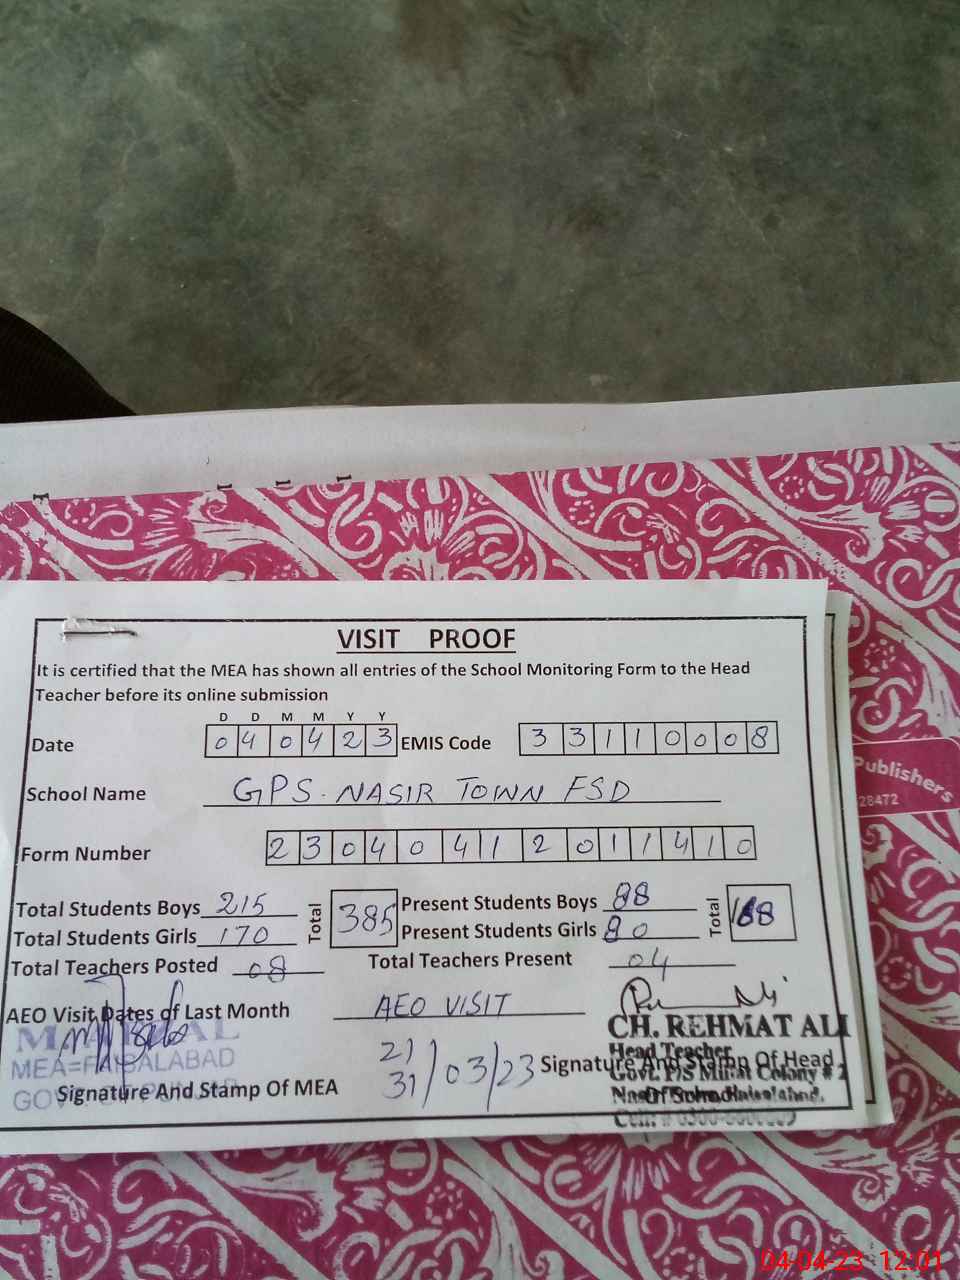 VISIT PROOF
It is certified that the MEA has shown all entries of the School Monitoring Form to the Head
Teacher before its online submission
D D M M Y Y
Date 0 4 0 4 2 3 EMIS Code 3 3 1 1 0 0 0 8
School Name GPS. NASIR TOWN FSD
Form Number 2 3 0 4 0 4 1 2 0 1 1 4 1 0
Total Students Boys 215 Total 385 Present Students Boys 88 Total 168
Total Students Girls 170 Present Students Girls 80
Total Teachers Posted 08 Total Teachers Present 04
AEO Visit Dates of Last Month AEO VISIT
21
31/03/23
CH. REHMAT ALI
Head Teacher
MEA=FAISALABAD
Signature And Stamp Of Head
Govt. P/S Colony # 2
GOVT
Signature And Stamp Of MEA
Of School
Publishers
28472
04-04-23 12:01